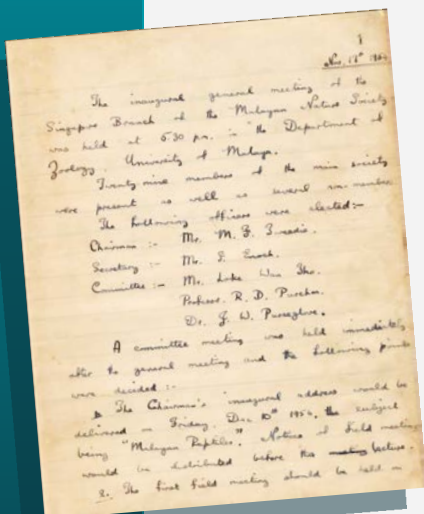 1
Nov. 17th 1954
The inaugural general meeting of the
Singapore Branch of the Malayan Nature Society
was held at 5.30 pm. in the Department of
Zoology, University of Malaya.
Twenty nine members of the main society
were present as well as several non-member
The following officers were elected:-
Chairman :- Mr. M. F. Tweedie.
Secretary :- Mr. I. Enoch.
Committee :- Mr. Loke Wan Tho.
Professor. R. D. Purchon.
Dr. J. W. Purseglove.
A committee meeting was held immediately
after the general meeting and the following points
were decided :-
The Chairman's inaugural address would be
delivered on Friday, Dec 10th 1954, the subject
being "Malayan Reptiles". Notices of field meeting
would be distributed before this meeting lecture.
2. The first field meeting should be held on